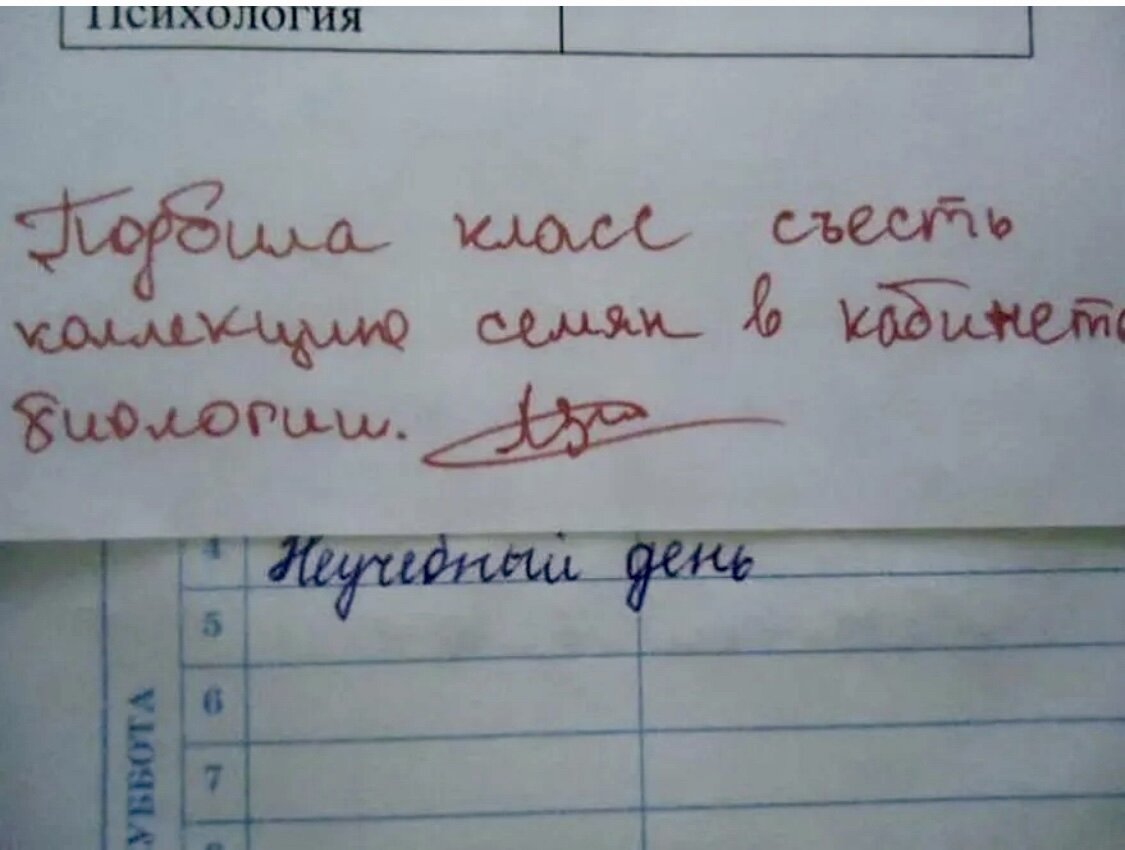 Психология
Подбила класс съесть
коллекцию семян в кабинете
биологии.
4 Неучебный день
5
6
7
УББОТА